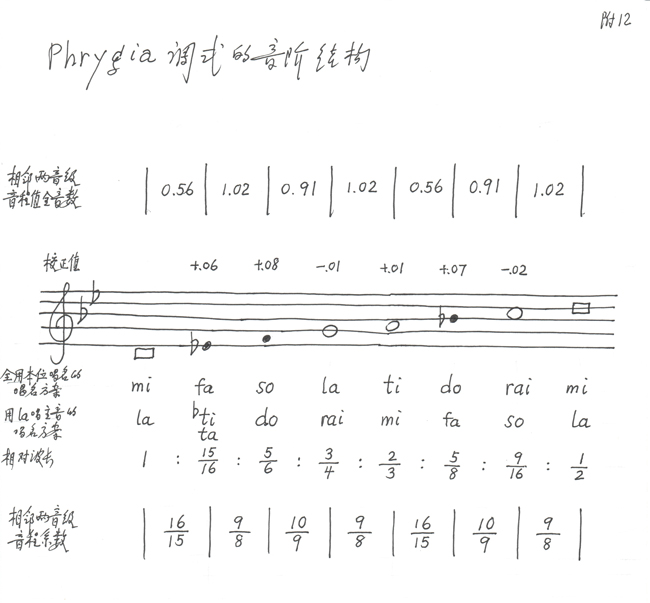 附12
Phrygia 调式的音阶结构
相邻两音级
音程值全音数 | 0.56 | 1.02 | 0.91 | 1.02 | 0.56 | 0.91 | 1.02 |
校正值 +.06 +.08 -.01 +.01 +.07 -.02
全用本位唱名的
唱名方案 mi fa so la ti do rai mi
用la唱主音的
唱名方案 la ♭ti do rai mi fa so la
ta
相对波长 1 : 15/16 : 5/6 : 3/4 : 2/3 : 5/8 : 9/16 : 1/2
相邻两音级
音程系数 | 16/15 | 9/8 | 10/9 | 9/8 | 16/15 | 10/9 | 9/8 |